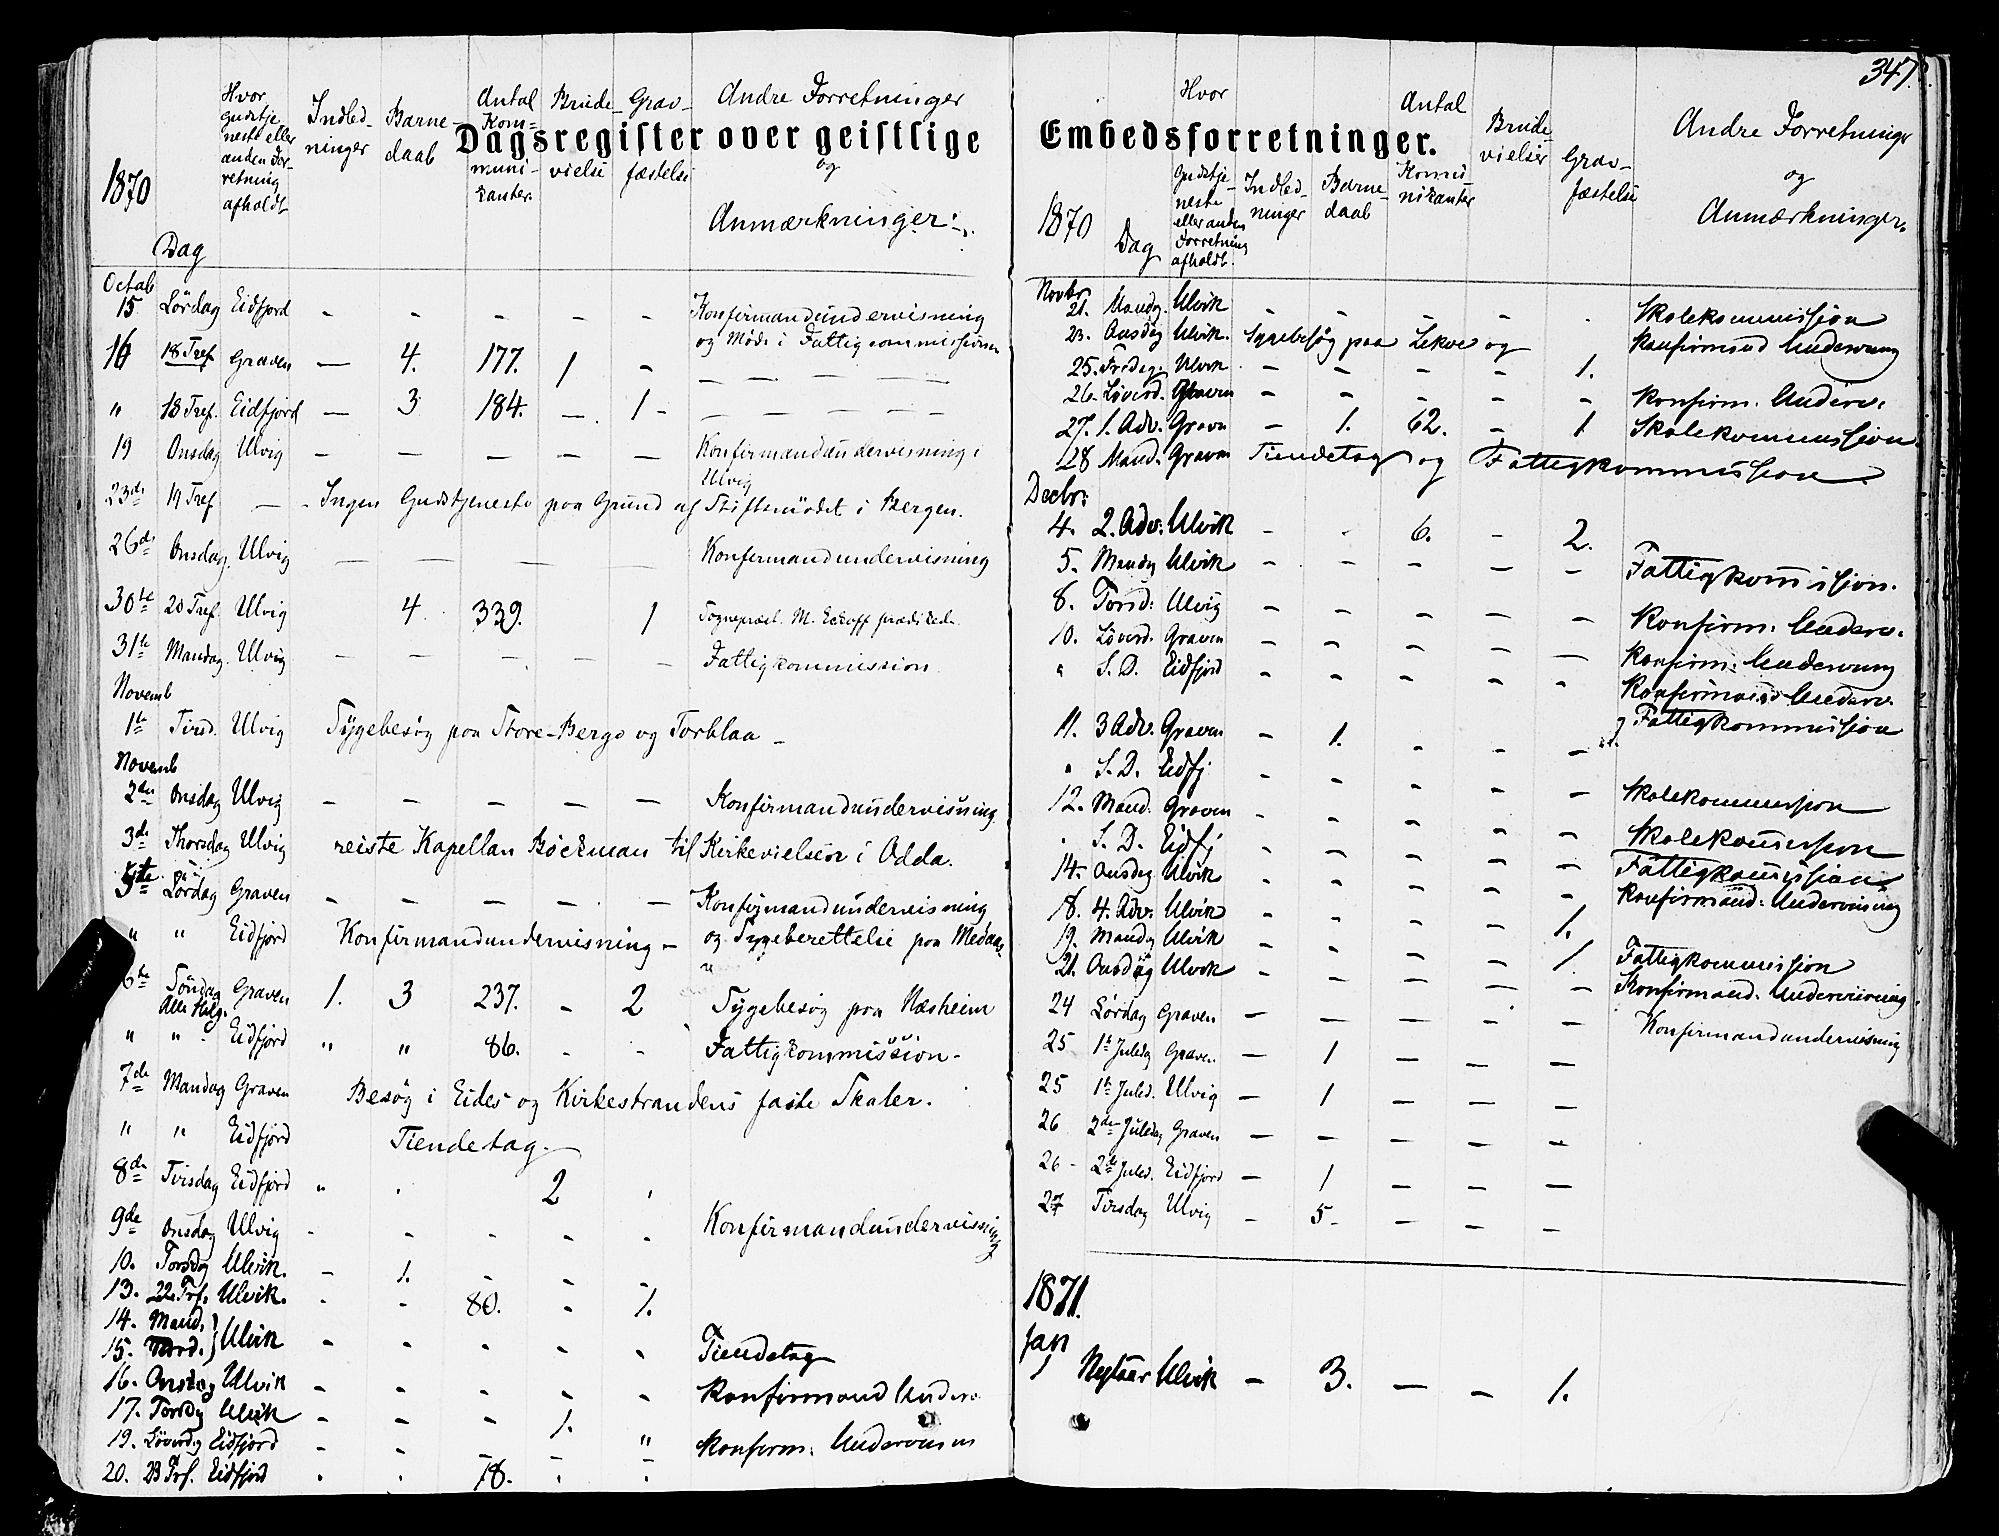 347.
Dagsregister over geistlige Embedsforretninger.
1870
Dag
Hvor
gudstje-
neste eller
anden For-
retning
afholdt
Indled-
ninger
Barne-
daab
Antal
Kom-
muni-
kanter.
Brude-
vielse
Grav-
fæstelse
Andre Forretninger
og
Anmærkninger:
Octob
15. Lördag Eidfjord - - - - - Konfirmandundervisning
og Möde i Fattigcommissionen
16 18 Tref Graven — 4. 177. 1 - — — — — —
" 18 Tref. Eidfjord — 3 184. — 1 - — — — — —
19 Onsdag Ulvig — — — — — Konfirmandundervisning i
Ulvig
23de 19 Tref — - Ingen Gudstjeneste paa Grund af Stiftsmödet i Bergen.
26de Onsdag. Ulvig — — — — Konfirmandundervisning
30te 20 Tref. Ulvig 4 339. 1 Sognepræst. M. Eckoff prædikede.
31te Mandag. Ulvig — — — - — Fattigkommission.
Novemb
1te Tirsd. Ulvig Sygebesög paa Store-Berge og Torblaa -
Novemb
2den Onsdag Ulvig - - - - - Konfirmandundervisning
3de Thorsdag Ulvig reiste Kapellan Böckman til Kirkevielsen i Odda.
5te Lördag Graven - - - - — Konfirmandundervisning
" " Eidfjord Konfirmandundervisning - og Sygeberettelse paa
6te Söndag Graven 1. 3 237. - 2 Sygebesög paa Næsheim
Alle Helg.
" " - Eidfjord " " 86. - - Fattigkommission -
7de Mandag Graven Besög i Eides og Kirkestrandens faste Skoler.
" " Eidfjord Tiendetag.
8de Tirsdag Eidfjord " . 2 .
9de Onsdag Ulvig - - - - - Konfirmandundervisning
10. Torsdag Ulvik. - 1. - - -
13. 22. Trf. Ulvik. - - 80. - 1.
14. Mand. }
15. } Ulvik - - - - - Tiendetag
16. Onsdag Ulvik - - - - - Konfirmand Underv.
17. Torsdg Ulvik - - - 1. "
19. Löverdg Eidfjord - - - - - Konfirm. Undervisn
20. 23 Trf. Eidfjord . . 78. . .
1870
Dag
Hvor
gudstje-
neste
eller anden
Forretning
afholdt.
Indled-
ninger
Barne-
daab
Antal
Komu-
nikanter
Brude
vielser
Grav-
fæstelse
Andre Forretninger
og
Anmærkninger.
Novbr
21. Mandg. Ulvik - - - - . Skolekommission
23. Onsdag Ulvik. Sygebesög paa Lekve og Konfirmand Underv.
25. Fredag. Ulvik - - - - 1.
26. Löverd. Graven - - - - - Konfirm. Underv.
27. 1. Adv. Gravn - 1. 62. - 1 Skolekommission.
28 Mand. Graven Tiendetag og Fattigkommission.
Decbr:
4. 2. Adv. Ulvik - - 6. - 2.
5. Mandg Ulvik - - - - - Fattigkomission.
8. Torsd: Ulvig - - - - - Konfirm. Underv.
10. Löverd. Graven - - - - - Konfirm. Undervisning
" S. D. Eidfjord - - - - - Konfirmand Underv.
og Fattigkommission
11. 3 Adv. Graven - 1. - - -
" S. D. Eidfj - - - - - Skolekommission
12. Mand. Graven - - - - - Skolekommission
. S. D. Eidfj - - - - - Fattigkommission
14. Onsdag Ulvik - - - - - Konfirmand: Undervisning
18. 4. Adv. Ulvik - - - - 1.
19. Mandg Ulvik - - - - 1. Fattigkommission
21. Onsdag Ulvik - - - - - Konfirmand. Undervisning.
24 Lördag Graven — — — — — Konfirmandundervisning
25 1te Juledg Graven — 1 — — —
25 1te Juled. Ulvig — 1 — — —
26 2den Juledg Graven — — — — —
26 - 2de Juled. Eidfjord — 1 — — —
27 Tirsdag Ulvig — 5 - — — —
1871.
Jan
1 Nytaar Ulvik - 3. — - 1.